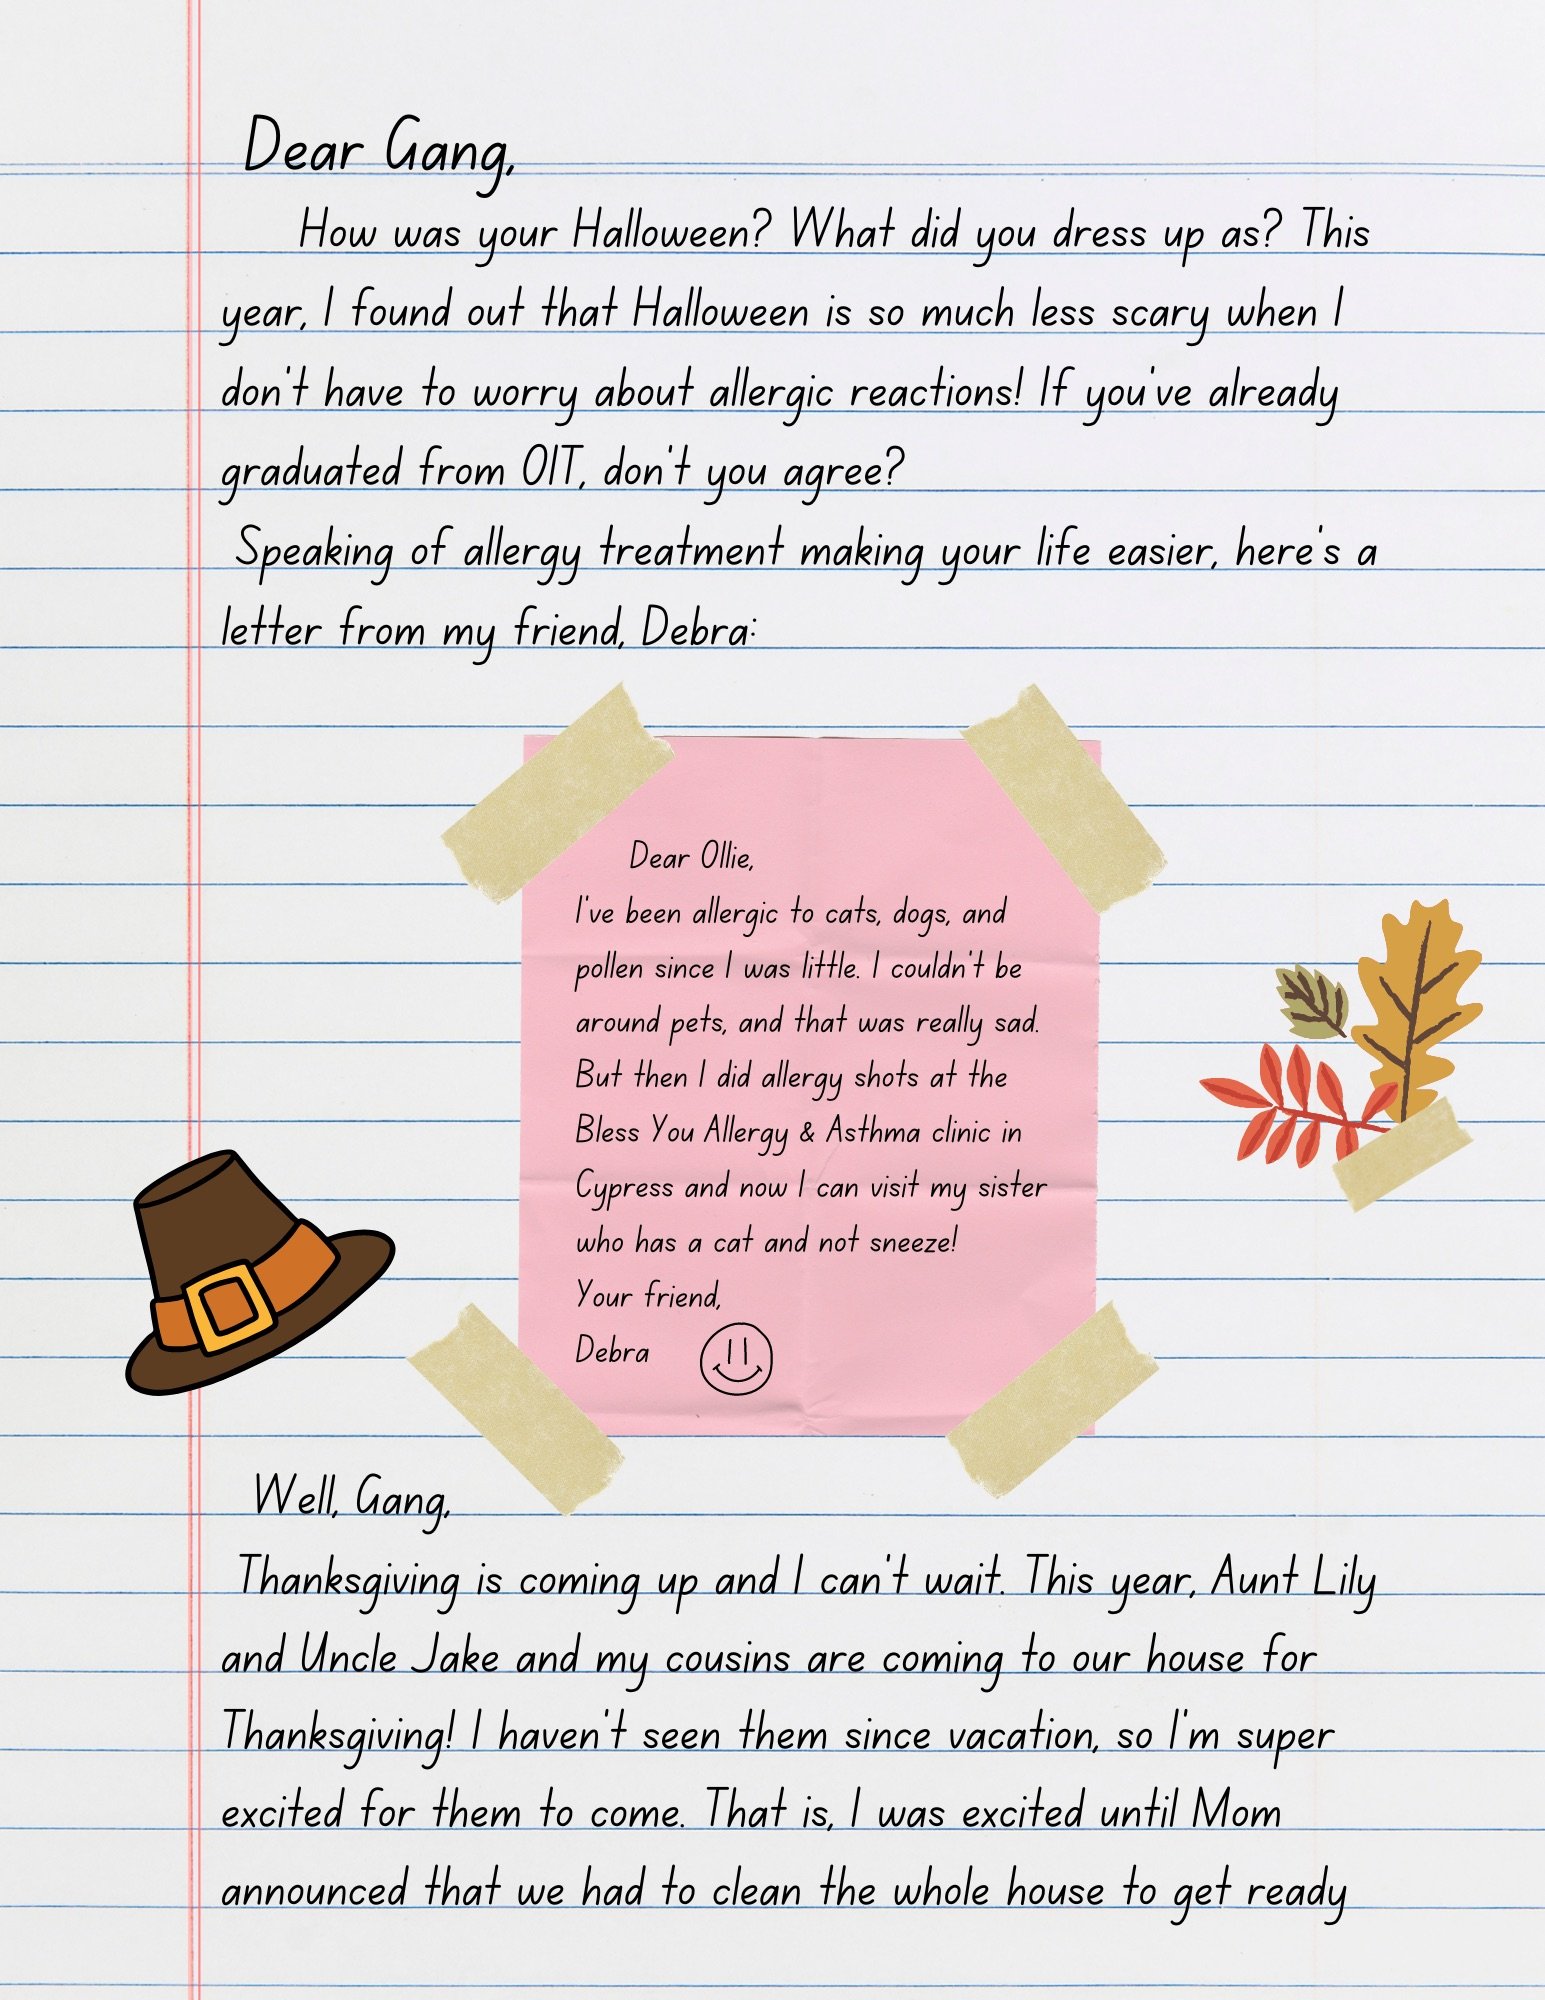 Dear Gang,
How was your Halloween? What did you dress up as? This
year, I found out that Halloween is so much less scary when I
don't have to worry about allergic reactions! If you've already
graduated from OIT, don't you agree?
Speaking of allergy treatment making your life easier, here's a
letter from my friend, Debra:
Dear Ollie,
I've been allergic to cats, dogs, and
pollen since I was little. I couldn't be
around pets, and that was really sad.
But then I did allergy shots at the
Bless You Allergy & Asthma clinic in
Cypress and now I can visit my sister
who has a cat and not sneeze!
Your friend,
Debra
Well, Gang,
Thanksgiving is coming up and I can't wait. This year, Aunt Lily
and Uncle Jake and my cousins are coming to our house for
Thanksgiving! I haven't seen them since vacation, so I'm super
excited for them to come. That is, I was excited until Mom
announced that we had to clean the whole house to get ready